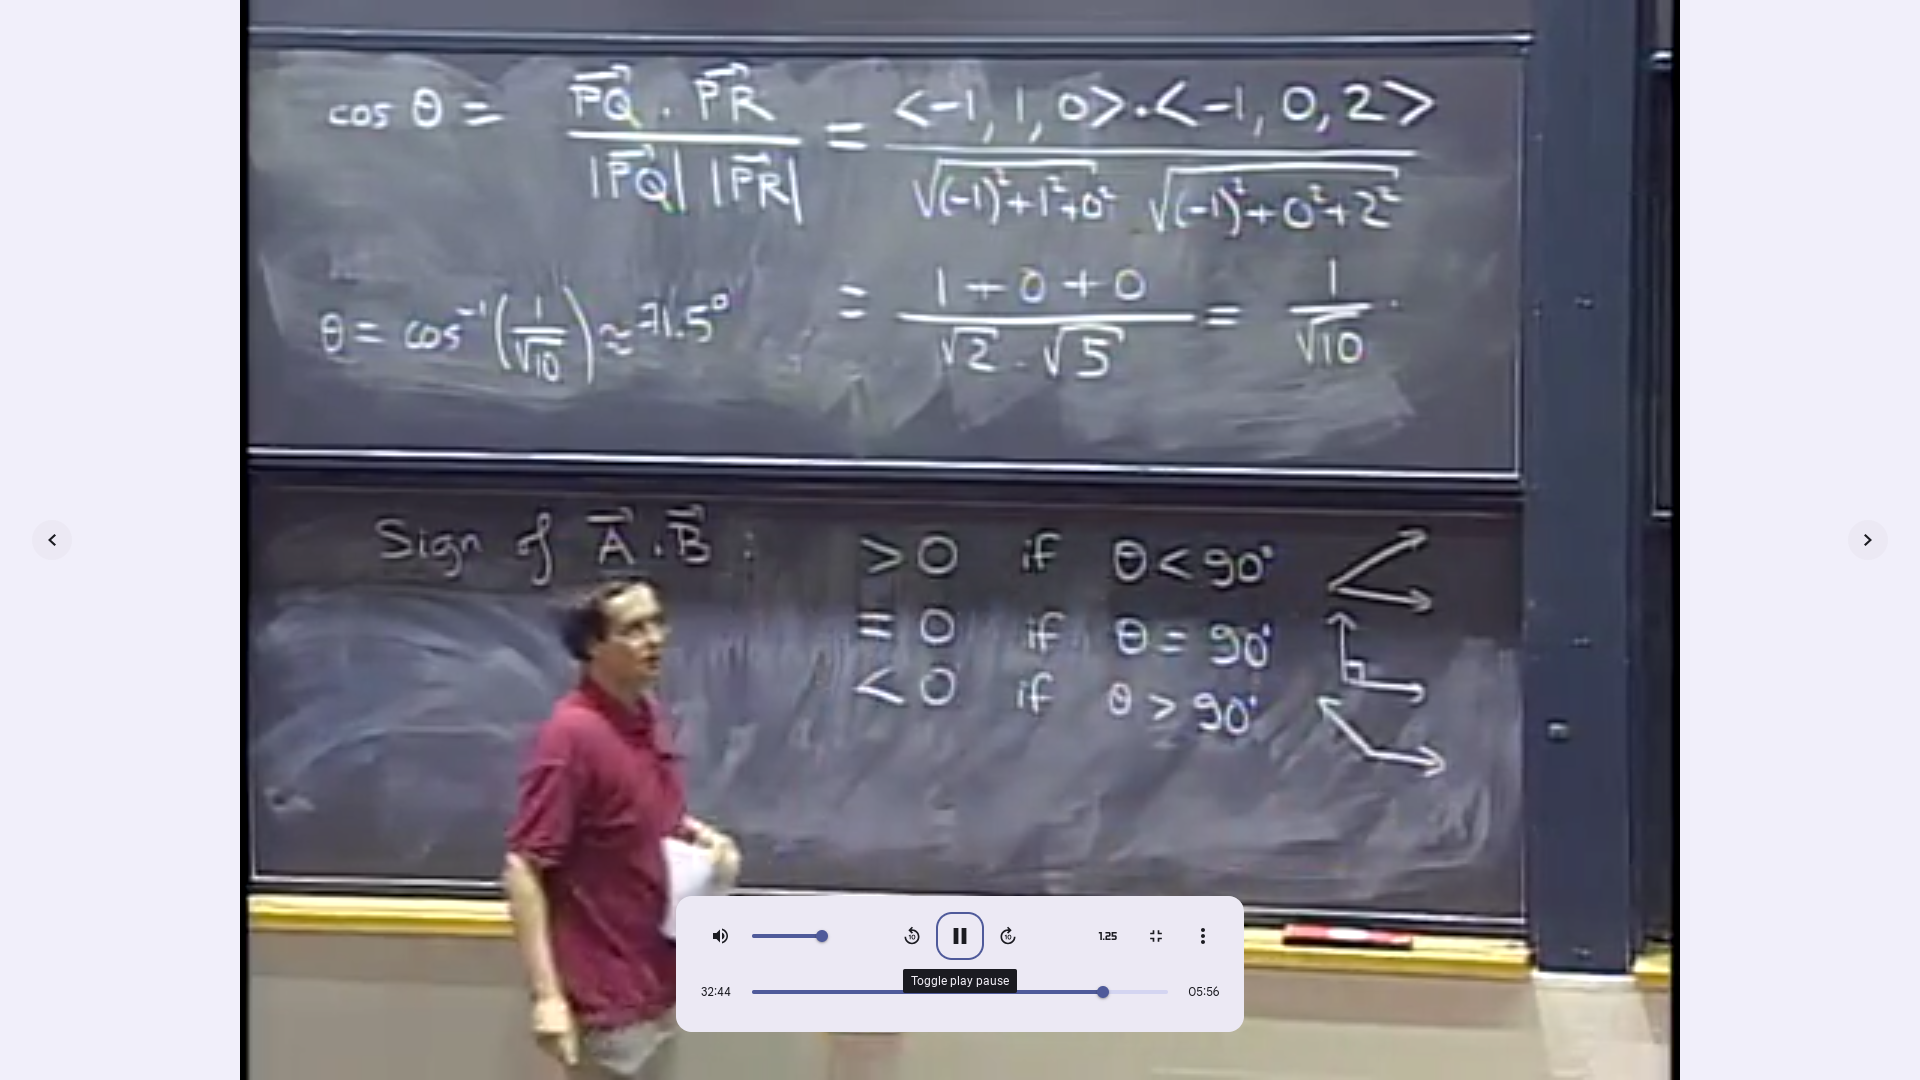 cos θ = PQ · PR / |PQ| |PR| = <-1, 1, 0>·<-1, 0, 2> / √((-1)²+1²+0²) √((-1)²+0²+2²)
= 1+0+0 / √2 · √5 = 1/√10 .
θ = cos⁻¹(1/√10) ≈ 71.5°
Sign of A · B :
> 0 if θ < 90°
= 0 if θ = 90°
< 0 if θ > 90°
10
10
1.25
Toggle play pause
32:44
05:56